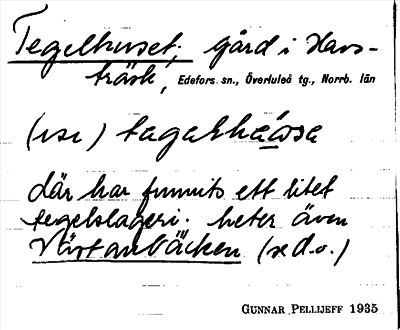 Tegelhuset; gård i Havs-
träsk, Edefors sn., Överluleå tg., Norrb. län
där har funnits ett litet
tegelslageri. heter även
(se d.o.)
GUNNAR PELLIJEFF 1935